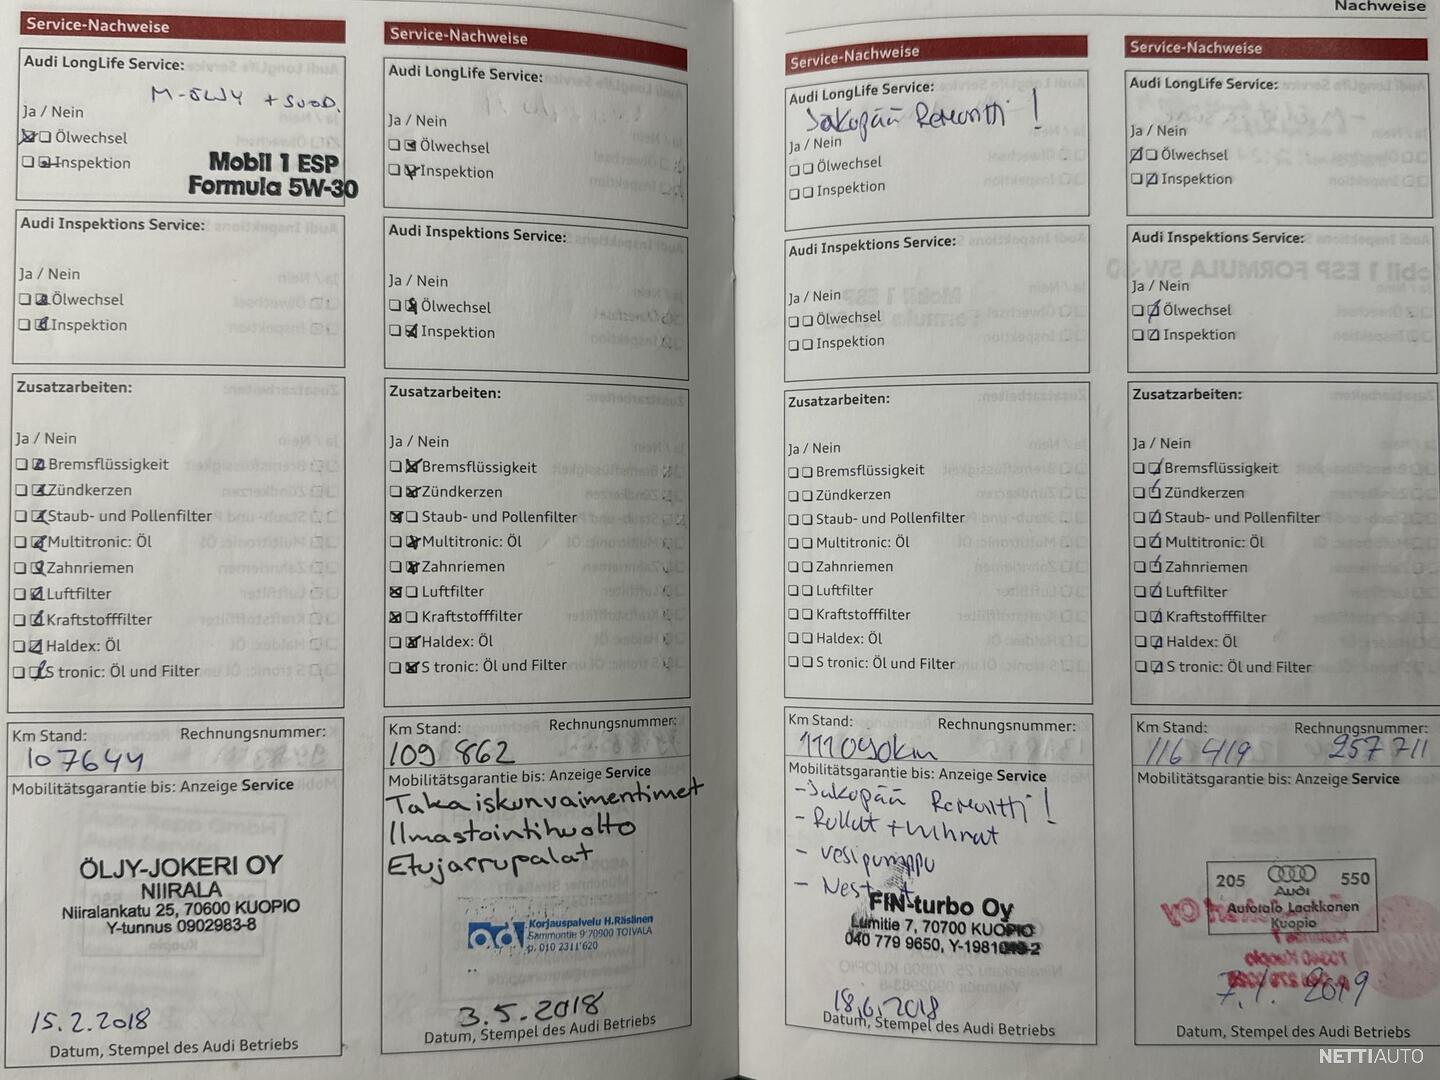 Nachweise
Service-Nachweise
Audi LongLife Service:
M-ÖLJY + SUOD.
Ja / Nein
Ölwechsel
Inspektion
Mobil 1 ESP
Formula 5W-30
Audi Inspektions Service:
Ja / Nein
Ölwechsel
Inspektion
Zusatzarbeiten:
Ja / Nein
Bremsflüssigkeit
Zündkerzen
Staub- und Pollenfilter
Multitronic: Öl
Zahnriemen
Luftfilter
Kraftstofffilter
Haldex: Öl
S tronic: Öl und Filter
Km Stand: Rechnungsnummer:
107644
Mobilitätsgarantie bis: Anzeige Service
ÖLJY-JOKERI OY
NIIRALA
Niiralankatu 25, 70600 KUOPIO
Y-tunnus 0902983-8
15.2.2018
Datum, Stempel des Audi Betriebs
Service-Nachweise
Audi LongLife Service:
Ja / Nein
Ölwechsel
Inspektion
Audi Inspektions Service:
Ja / Nein
Ölwechsel
Inspektion
Zusatzarbeiten:
Ja / Nein
Bremsflüssigkeit
Zündkerzen
Staub- und Pollenfilter
Multitronic: Öl
Zahnriemen
Luftfilter
Kraftstofffilter
Haldex: Öl
S tronic: Öl und Filter
Km Stand: Rechnungsnummer:
109 862
Mobilitätsgarantie bis: Anzeige Service
Takaiskunvaimentimet
Ilmastointihuolto
Etujarrupalat
ad Korjauspalvelu H.Räsänen
Sammontie 9 70900 TOIVALA
p. 010 2311 620
3.5.2018
Datum, Stempel des Audi Betriebs
Service-Nachweise
Audi LongLife Service:
Jakopää Remontti!
Ja / Nein
Ölwechsel
Inspektion
Audi Inspektions Service:
Ja / Nein
Ölwechsel
Inspektion
Zusatzarbeiten:
Ja / Nein
Bremsflüssigkeit
Zündkerzen
Staub- und Pollenfilter
Multitronic: Öl
Zahnriemen
Luftfilter
Kraftstofffilter
Haldex: Öl
S tronic: Öl und Filter
Km Stand: Rechnungsnummer:
111090km
Mobilitätsgarantie bis: Anzeige Service
-Jakopää Remontti!
- Rullat + hihnat
- vesipumppu
- Nesteet
FIN-turbo Oy
Lumitie 7, 70700 KUOPIO
040 779 9650, Y-1981049-2
18.6.2018
Datum, Stempel des Audi Betriebs
Service-Nachweise
Audi LongLife Service:
Ja / Nein
Ölwechsel
Inspektion
Audi Inspektions Service:
Ja / Nein
Ölwechsel
Inspektion
Zusatzarbeiten:
Ja / Nein
Bremsflüssigkeit
Zündkerzen
Staub- und Pollenfilter
Multitronic: Öl
Zahnriemen
Luftfilter
Kraftstofffilter
Haldex: Öl
S tronic: Öl und Filter
Km Stand: Rechnungsnummer:
116 419 257 711
Mobilitätsgarantie bis: Anzeige Service
205 Audi 550
Autotalo Laakkonen
Kuopio
7.1. 2019
Datum, Stempel des Audi Betriebs
NETTIAUTO